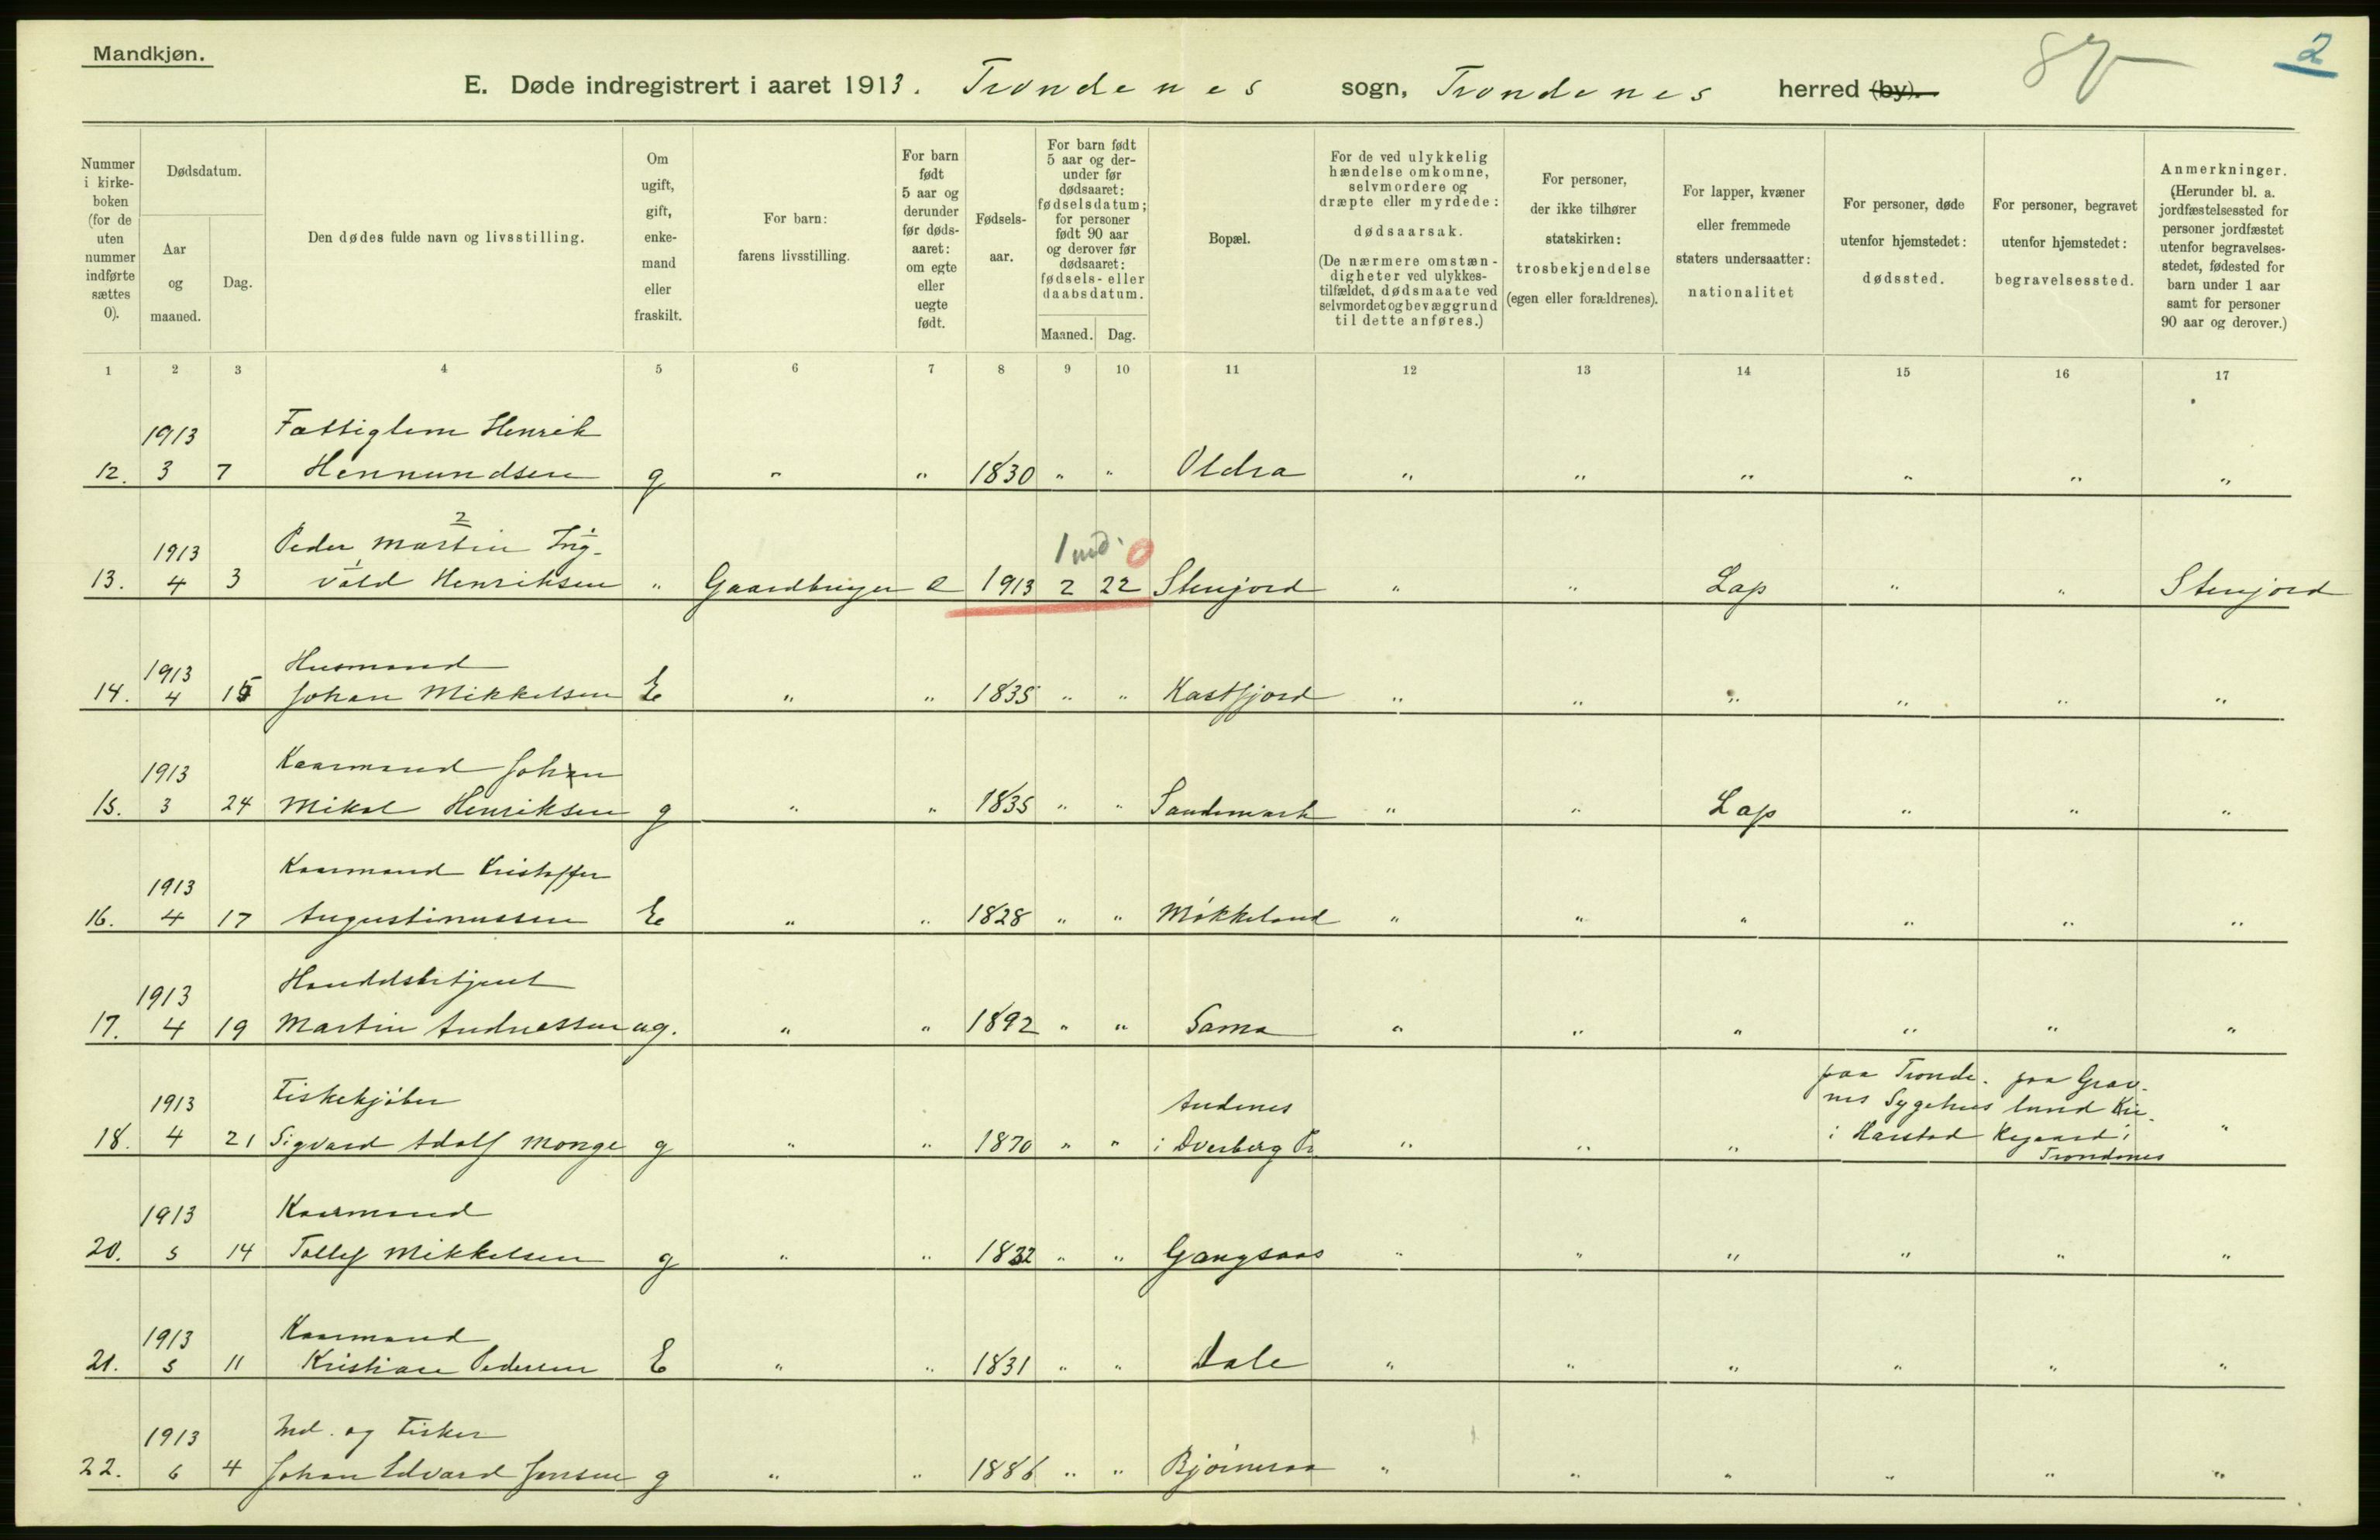 Mandkjøn.
8
2
E. Døde indregistrert i aaret 1913. Trondenes sogn, Trondenes herred (by).
Nummer i kirke-boken (for de uten nummer indførte sættes 0).
Dødsdatum.
Aar og maaned.
Dag.
Den dødes fulde navn og livsstilling.
Om ugift, gift, enke-mand eller fraskilt.
For barn: farens livsstilling.
For barn født 5 aar og derunder før døds-aaret: om egte eller uegte født.
Fødsels-aar.
For barn født 5 aar og der-under før dødsaaret: fødselsdatum; for personer født 90 aar og derover før dødsaaret: fødsels- eller daabsdatum.
Maaned. Dag.
Bopæl.
For de ved ulykkelig hændelse omkomne, selvmordere og dræpte eller myrdede: dødsaarsak. (De nærmere omstæn-digheter ved ulykkes-tilfældet, dødsmaate ved selvmordet og bevæggrund til dette anføres.)
For personer, der ikke tilhører statskirken: trosbekjendelse (egen eller forældrenes).
For lapper, kvæner eller fremmede staters undersaatter: nationalitet
For personer, døde utenfor hjemstedet: dødssted.
For personer, begravet utenfor hjemstedet: begravelsessted.
Anmerkninger. (Herunder bl. a. jordfæstelsessted for personer jordfæstet utenfor begravelses-stedet, fødested for barn under 1 aar samt for personer 90 aar og derover.)
1 2 3 4 5 6 7 8 9 10 11 12 13 14 15 16 17
1913 Fattiglem Henrik
12. 3 7 Hennundsen g " " 1830 " " Oldra " " " " " "
2
1913 Peder Martin Ing- 1 md. 0
13. 4 3 vald Henriksen " Gaardbruger e 1913 2 22 Stenjord " " Lap " " Stenjord
1913 Husmand
14. 4 15 Johan Mikkelsen E " " 1835 " " Kastfjord " " " " " "
1913 Kaarmand Johan
15. 3 24 Mikal Henriksen g " " 1835 " " Sandemark " " Lap " " "
1913 Kaarmand Kristoffer
16. 4 17 Augustinussen E " " 1828 " " Møkkeland " " " " " "
1913 Handelsbetjent
17. 4 19 Martin Andreassen ug. " " 1892 " " Sama " " " " " "
1913 Fiskekjøber Andenes paa Tronde- paa Grav-
nes Sygehus lund Kir-
18. 4 21 Sigvard Adolf Monge g " " 1870 " " i Dverberg Pr. " " " i Harstad kegaard i "
Trondenes
1913 Kaarmand
20. 5 14 Tollef Mikkelsen g " " 1832 " " Gangsaas " " " " " "
1913 Kaarmand
21. 5 11 Kristian Pedersen E " " 1831 " " Dale " " " " " "
1913 Ind. og Fisker
22. 6 4 Johan Edvard Jensen g " " 1886 " " Bjørneraa " " " " " "